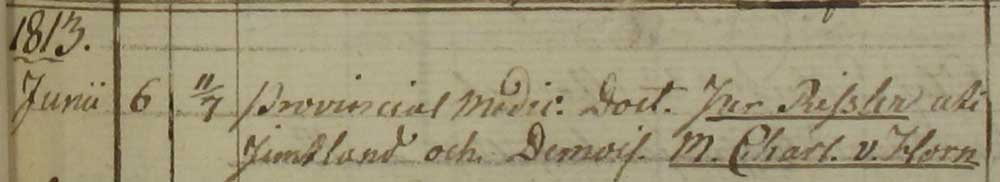 1813.
Junii 6 11/7 Provincial Medic: Doct. Per Rissler uti
Jemtland och Demois. M. Charl. v. Horn